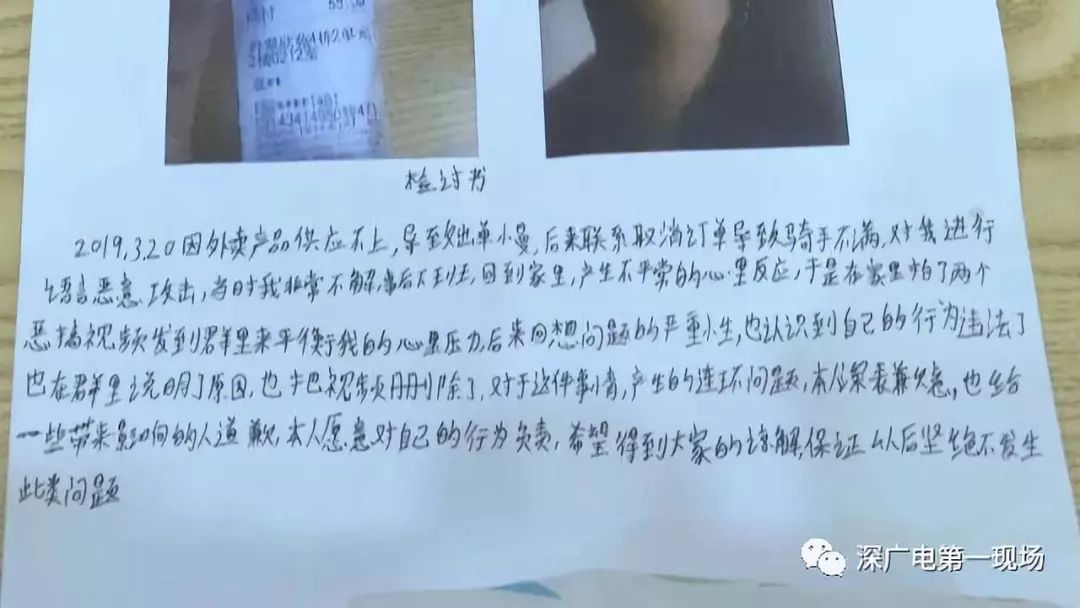 59.00
检讨书
2019.3.20因外卖产品供应不上,导致出单小慢,后来联系取消订单导致骑手不满,对我进行
语言恶意攻击,当时我非常不解,事后下班,回到家里,产生不平常的心里反应,于是在家里拍了两个
恶搞视频发到群里来平衡我的心里压力,后来回想问题的严重小生,也认识到自己的行为违法了
也在群里说明了原因,也把视频册删除了,对于这件事情,产生的连环问题,本人深表兼欠意,也给
一些带来影响的人道歉,本人愿意对自己的行为负责,希望得到大家的谅解,保证以后坚绝不发生
此类问题
深广电第一现场